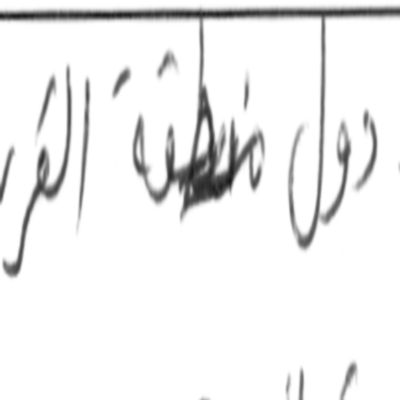 دول منطقة القر